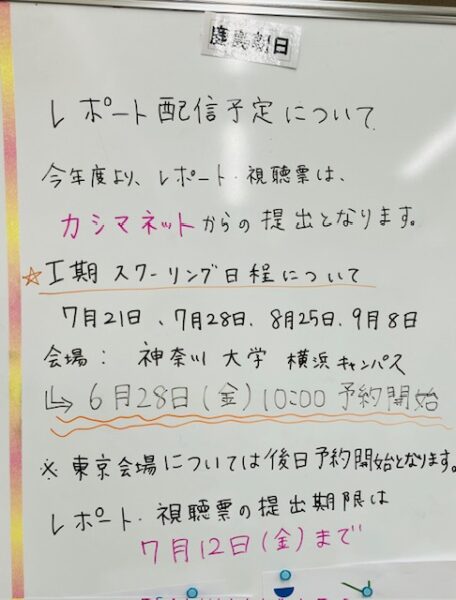 鹿島朝日
レポート配信予定について
今年度より、レポート・視聴票は、
カシマネットからの提出となります。
☆I期 スクーリング日程について
7月21日、7月28日、8月25日、9月8日
会場: 神奈川大学 横浜キャンパス
↳ 6月28日(金)10:00 予約開始
※東京会場については後日予約開始となります。
レポート・視聴票の提出期限は
7月12日(金)まで